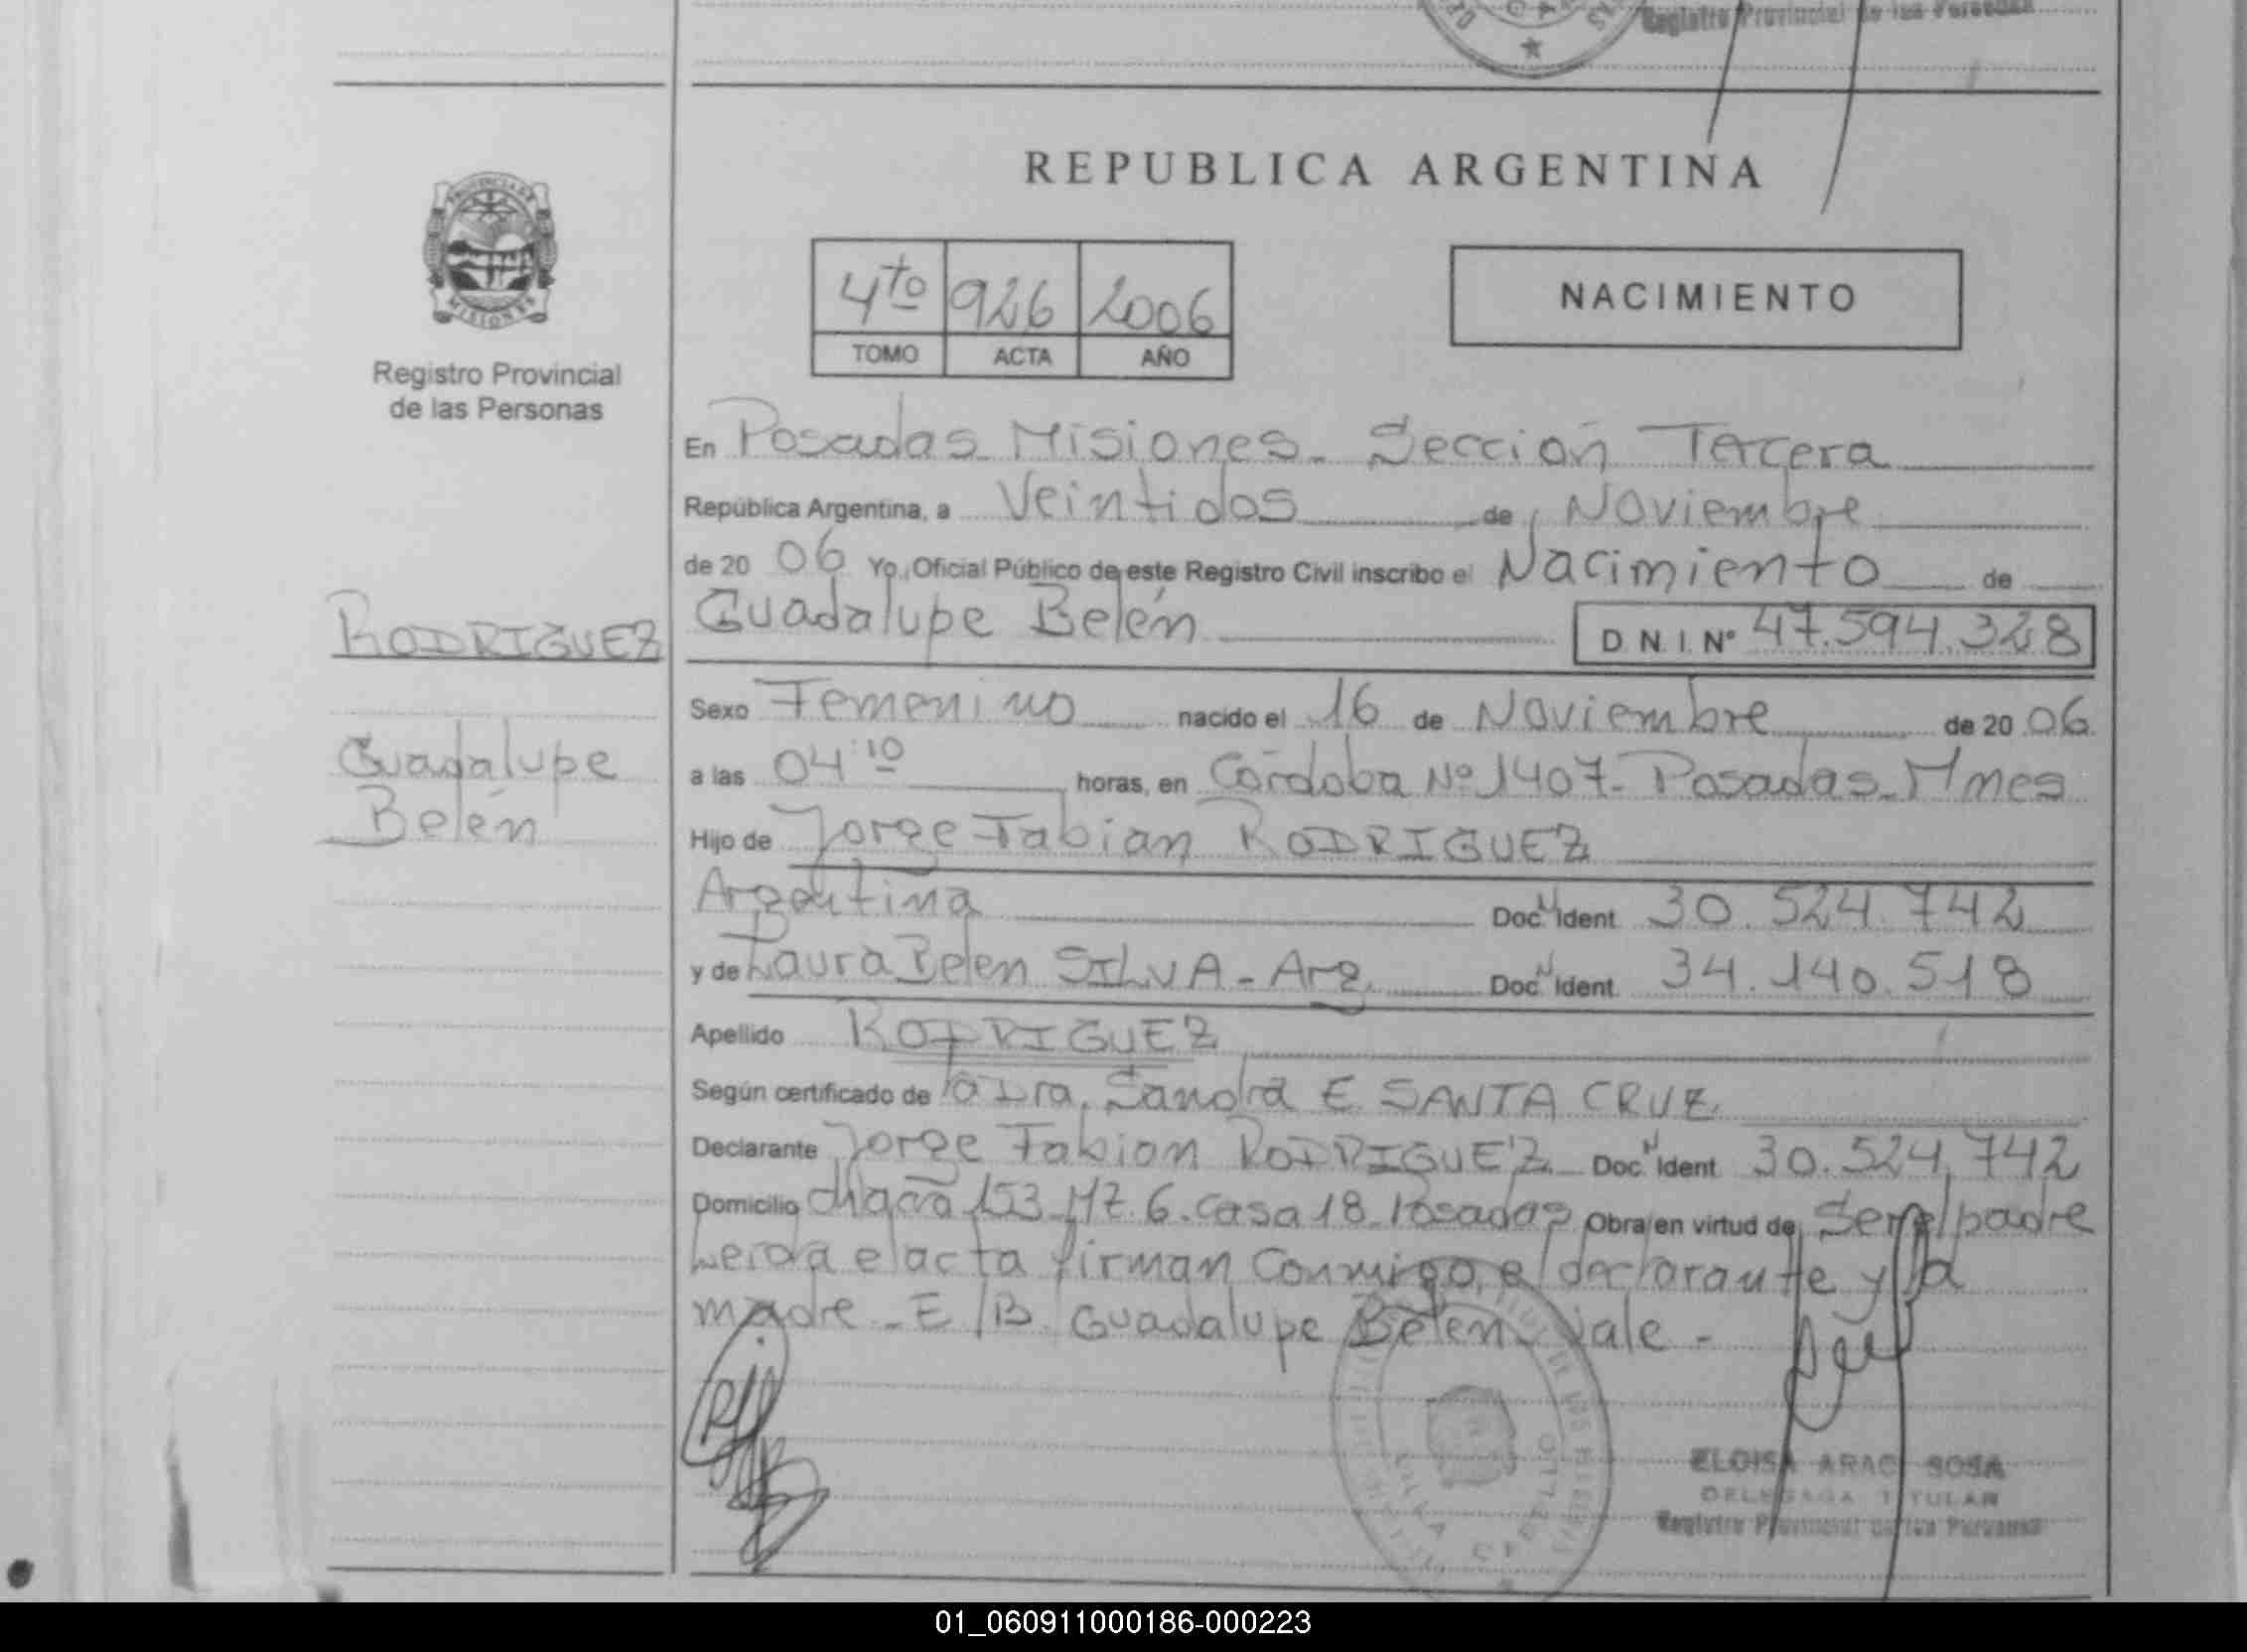 Registro Provincial de las Personas
REPUBLICA ARGENTINA
PROVINCIA DE
MISIONES
Registro Provincial
de las Personas
4to 926 2006
TOMO ACTA AÑO
NACIMIENTO
En Posadas Misiones. Sección Tercera
República Argentina, a Veintidos de Noviembre
de 20 06 Yo, Oficial Público de este Registro Civil inscribo el Nacimiento de
RODRIGUEZ
Guadalupe Belén
Guadalupe Belén D.N.I. Nº 47.594.328
Sexo Femenino nacido el 16 de Noviembre de 20 06
a las 04:10 horas, en Córdoba Nº 1407- Posadas- Mnes
Hijo de Jorge Fabian RODRIGUEZ
Argentina Doc. Ident. 30.524.742
y de Laura Belen SILVA - Arg. Doc. Ident. 34.140.518
Apellido RODRIGUEZ
Según certificado de la Dra. Sandra E. SANTA CRUZ
Declarante Jorge Fabian RODRIGUEZ Doc. Ident. 30.524.742
Domicilio chacra 153 Mz. 6. Casa 18. Posadas Obra en virtud de Ser el padre
Leida el acta firman Conmigo, el declarante y la
madre - E/B. Guadalupe Belén. Vale -
ELOISA ARAC SOSA
DELEGADA TITULAR
Registro Provincial de las Personas
01_060911000186-000223